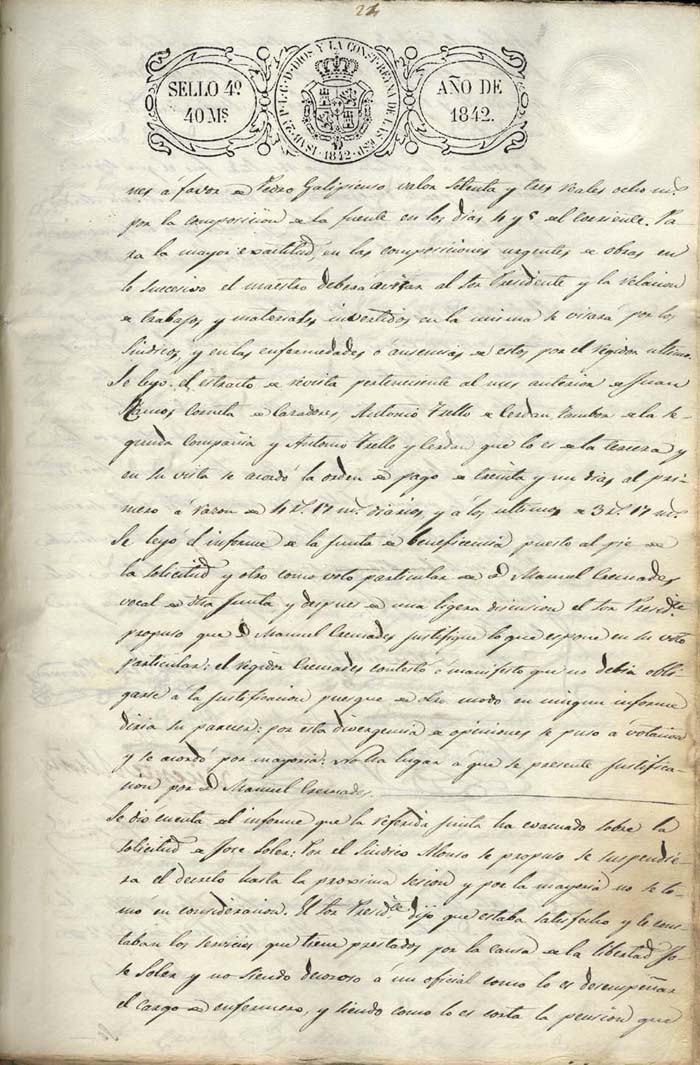 24
SELLO 4º
40 Ms
ISAB. 2ª P. L. G. D. DIOS Y LA CONST. REYNA DE LAS ESP.
1842
AÑO DE
1842.
nes á favor de Pedro Galipienso valor setenta y tres reales ocho ms.
por la composicion de la fuente en los dias 4 y 5 del corriente. Pa
ra la mayor exactitud en las composiciones urgentes de obras en
lo sucesivo el maestro deberá avisar al Sor Presidente y la relacion
de trabajos y materiales invertidos en la misma se visará por los
Sindicos, y en las enfermedades ó ausencias de estos por el regidor ultimo.
Se leyó el estracto de revista perteneciente al mes anterior de Juan
Ramos Corneta de Cazadores, Antonio Trello de Cerdan, tambor de la se-
gunda Compañia y Antonio Trello y Cerdan que lo es de la tercera y
en su vista se acordó la orden de pago de treinta y un dias al pri-
mero á razon de 4 rs. 17 ms. diarios, y á los ultimos de 3 rs. 17 ms.
Se leyó el informe de la Junta de beneficencia puesto al pie de
la solicitud y otro como voto particular de D. Manuel Cremades
vocal de dha Junta y despues de una ligera discusion el Sor Presidte
propuso que D. Manuel Cremades justifique lo que espone en su voto
particular: el regidor Cremades contestó ó manifestó que no debia obli-
garse á la justificacion puesque de otro modo en ningun informe
diria su parecer: por esta divergencia de opiniones se puso á votacion
y se acordó por mayoria: No ha lugar á que se presente justifica-
cion por D. Manuel Cremades.
Se dio cuenta del informe que la referida junta ha evacuado sobre la
solicitud de Jose Soler: Por el Sindico Alonso se propuso se suspendie-
ra el decreto hasta la proxima sesion y por la mayoria no se to-
mó en consideracion. El Sor Presidte dijo que estaba satisfecho y le cons-
taban los servicios que tiene prestados por la causa de la libertad Jo-
se Soler y no siendo decoroso á un oficial como lo es desempeñar
el cargo de enfermero, y siendo como lo es corta la pension que